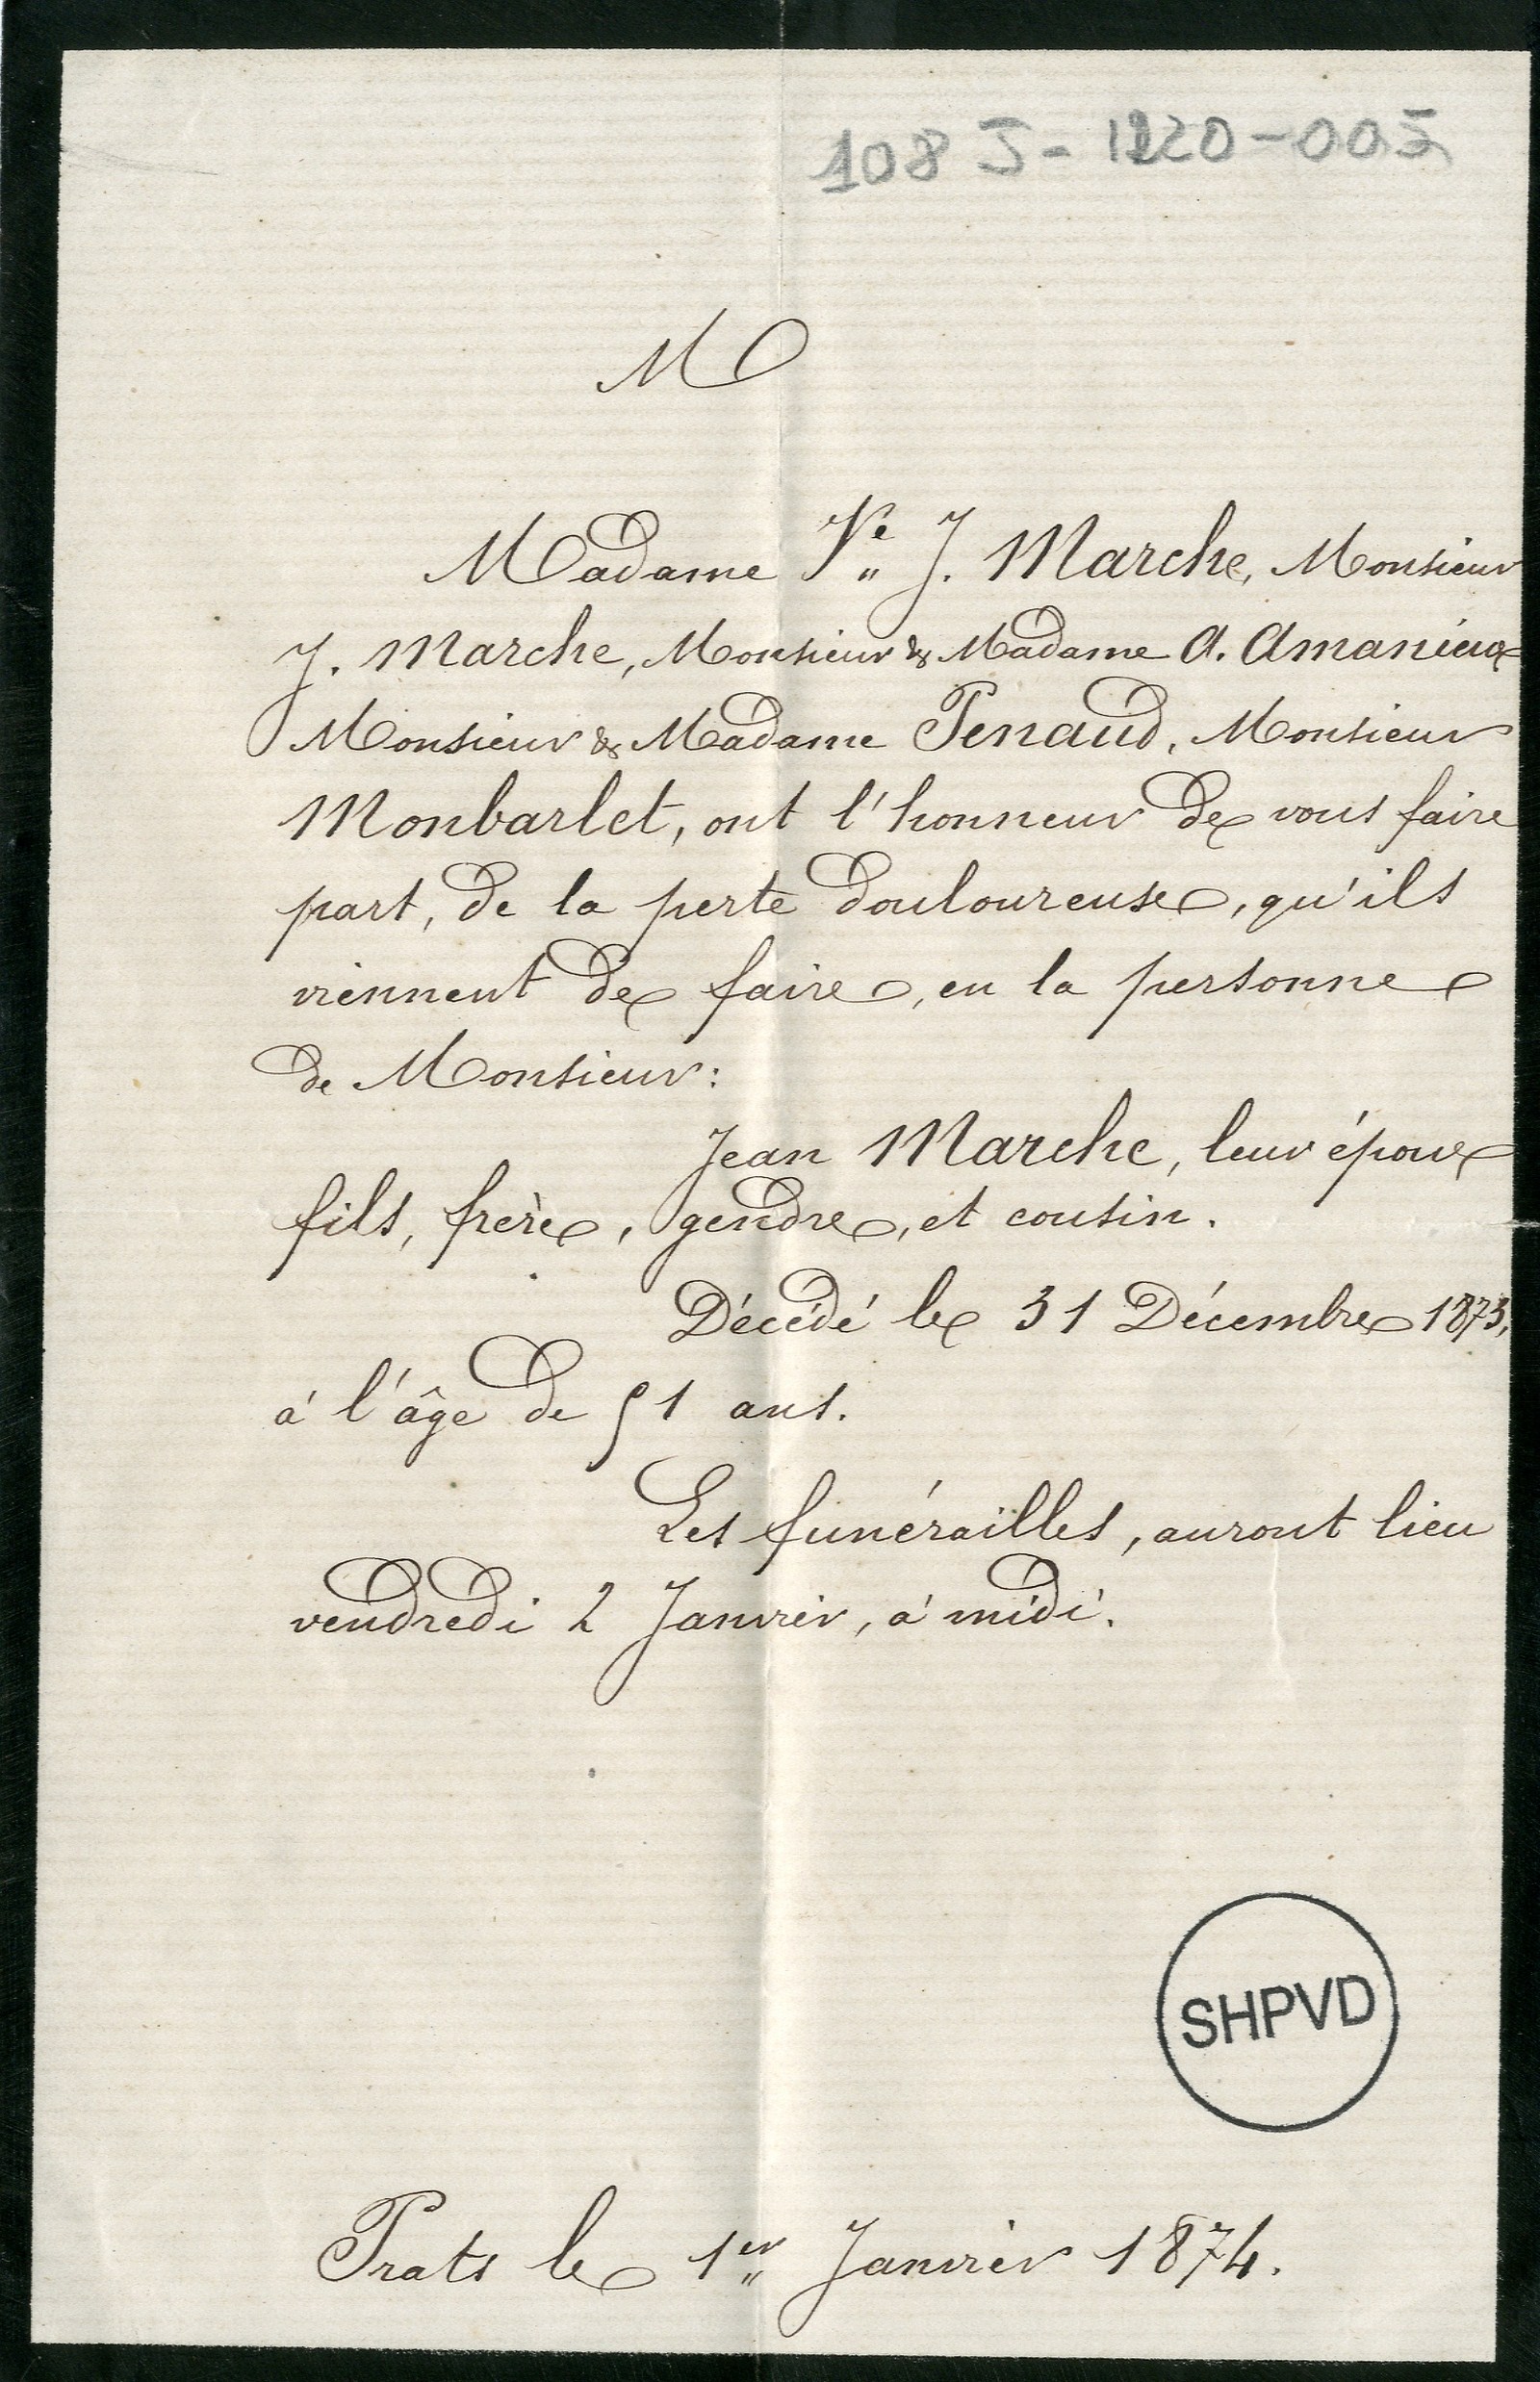 108 J - 1220 - 005
M
Madame Ve J. Marche, Monsieur
J. Marche, Monsieur & Madame A. Amanieux
Monsieur & Madame Penaud, Monsieur
Monbarlet, ont l'honneur de vous faire
part, de la perte douloureuse, qu'ils
viennent de faire, en la personne
de Monsieur:
Jean Marche, leur époux
fils, frère, gendre, et cousin.
Décédé le 31 Décembre 1873,
à l'âge de 51 ans.
Les funérailles, auront lieu
vendredi 2 Janvier, à midi.
SHPVD
Prats le 1er Janvier 1874.